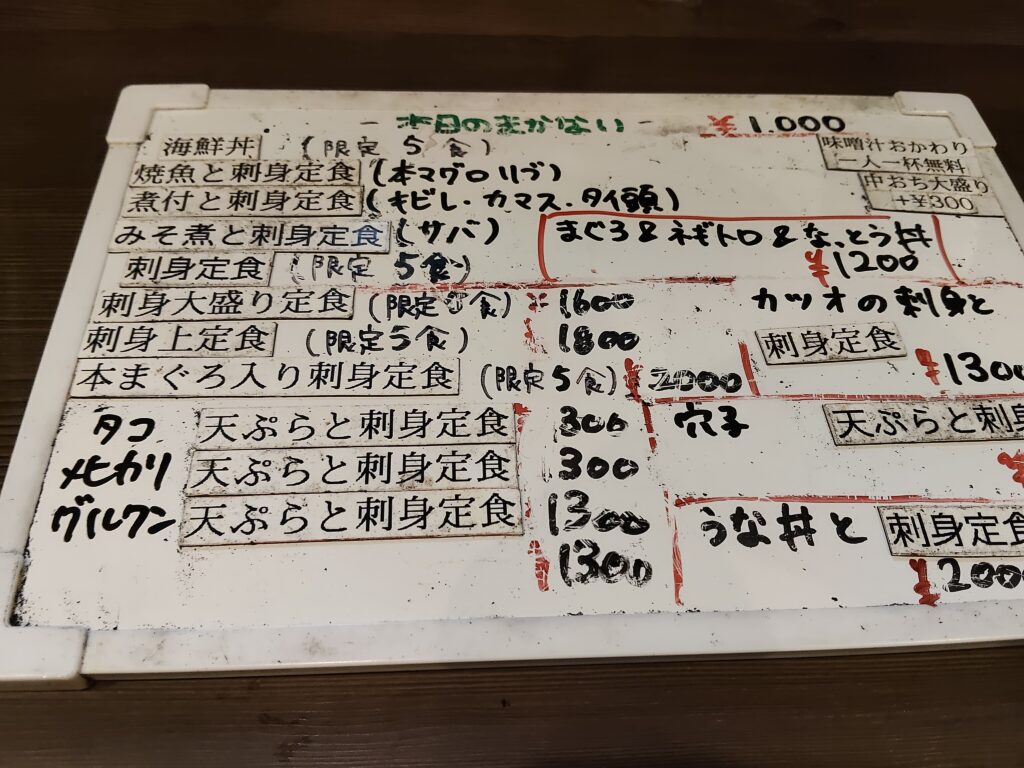 - 本日のまかない - ¥1.000
海鮮丼 (限定5食)
味噌汁おかわり
一人一杯無料
焼魚と刺身定食 (本マグロリブ)
中おち大盛り
+¥300
煮付と刺身定食 (キビレ・カマス・タイ頭)
みそ煮と刺身定食 (サバ)
まぐろ&ネギトロ&なっとう丼
¥1200
刺身定食 (限定5食)
刺身大盛り定食 (限定5食) ¥1600
カツオの刺身と
刺身定食
¥1300
刺身上定食 (限定5食) 1800
本まぐろ入り刺身定食 (限定5食) ¥2000
タコ 天ぷらと刺身定食 300
穴子 天ぷらと刺身
メヒカリ 天ぷらと刺身定食 300
グルクン 天ぷらと刺身定食 1300
うな丼と 刺身定食
¥2000
1300